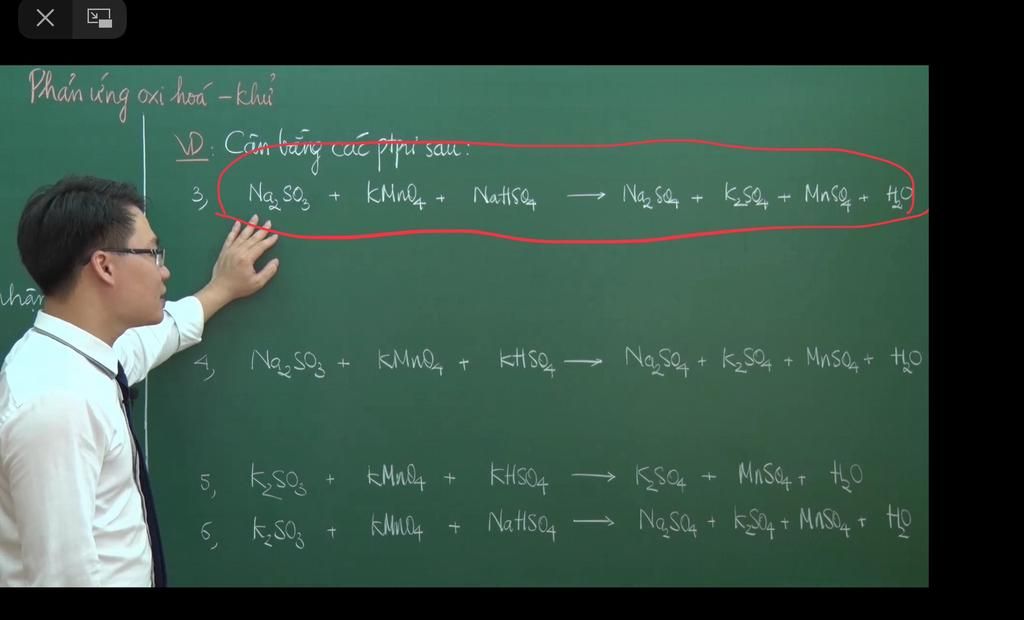 Phản ứng oxi hoá - khử
VD: Cân bằng các ptpư sau:
3, Na₂SO₃ + KMnO₄ + NaHSO₄ → Na₂SO₄ + K₂SO₄ + MnSO₄ + H₂O
nhận
4, Na₂SO₃ + KMnO₄ + KHSO₄ → Na₂SO₄ + K₂SO₄ + MnSO₄ + H₂O
5, K₂SO₃ + KMnO₄ + KHSO₄ → K₂SO₄ + MnSO₄ + H₂O
6, K₂SO₃ + KMnO₄ + NaHSO₄ → Na₂SO₄ + K₂SO₄ + MnSO₄ + H₂O